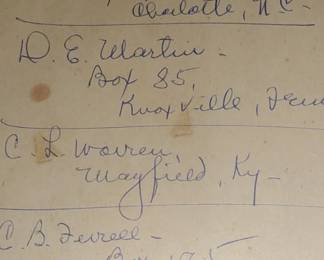 Charlotte, N C -
D. E. Martin -
Box 85,
Knoxville, Tenn
C. L. Warren,
Mayfield, Ky -
C. B. Ferrell -
Box